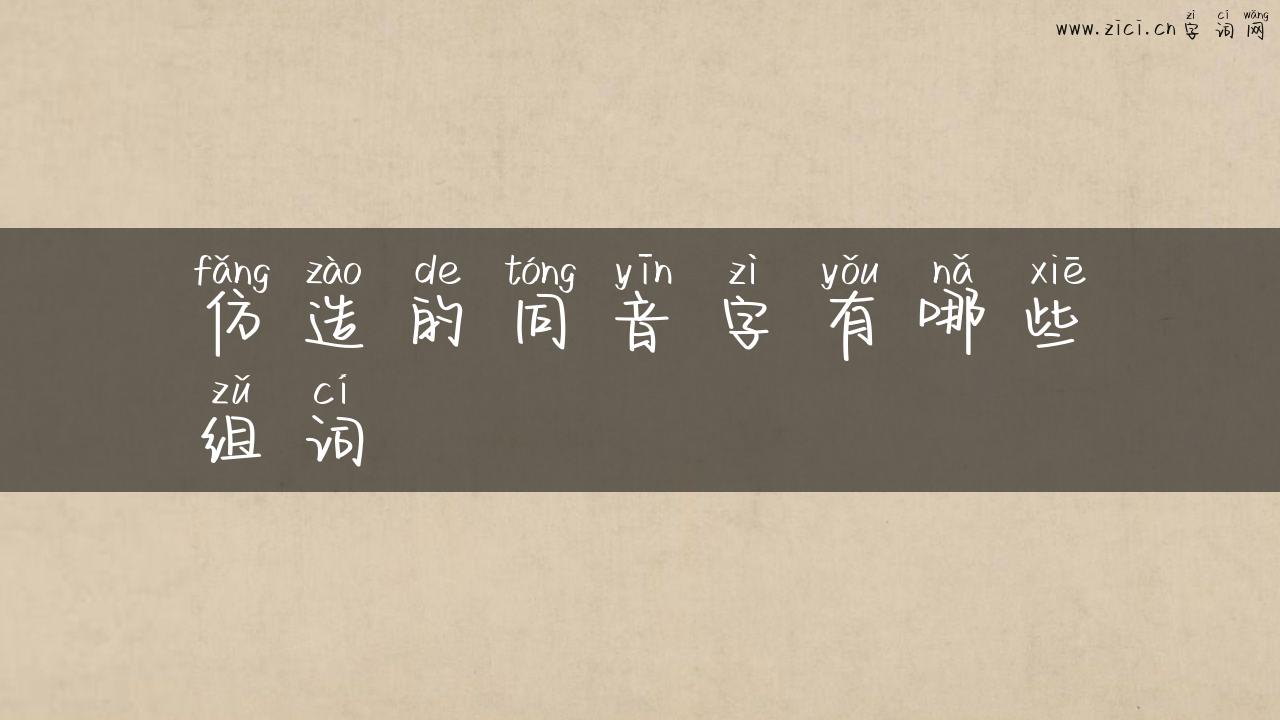 zì cí wǎng
www.zici.cn 字词网
fǎng zào de tóng yīn zì yǒu nǎ xiē
仿造的同音字有哪些
zǔ cí
组词